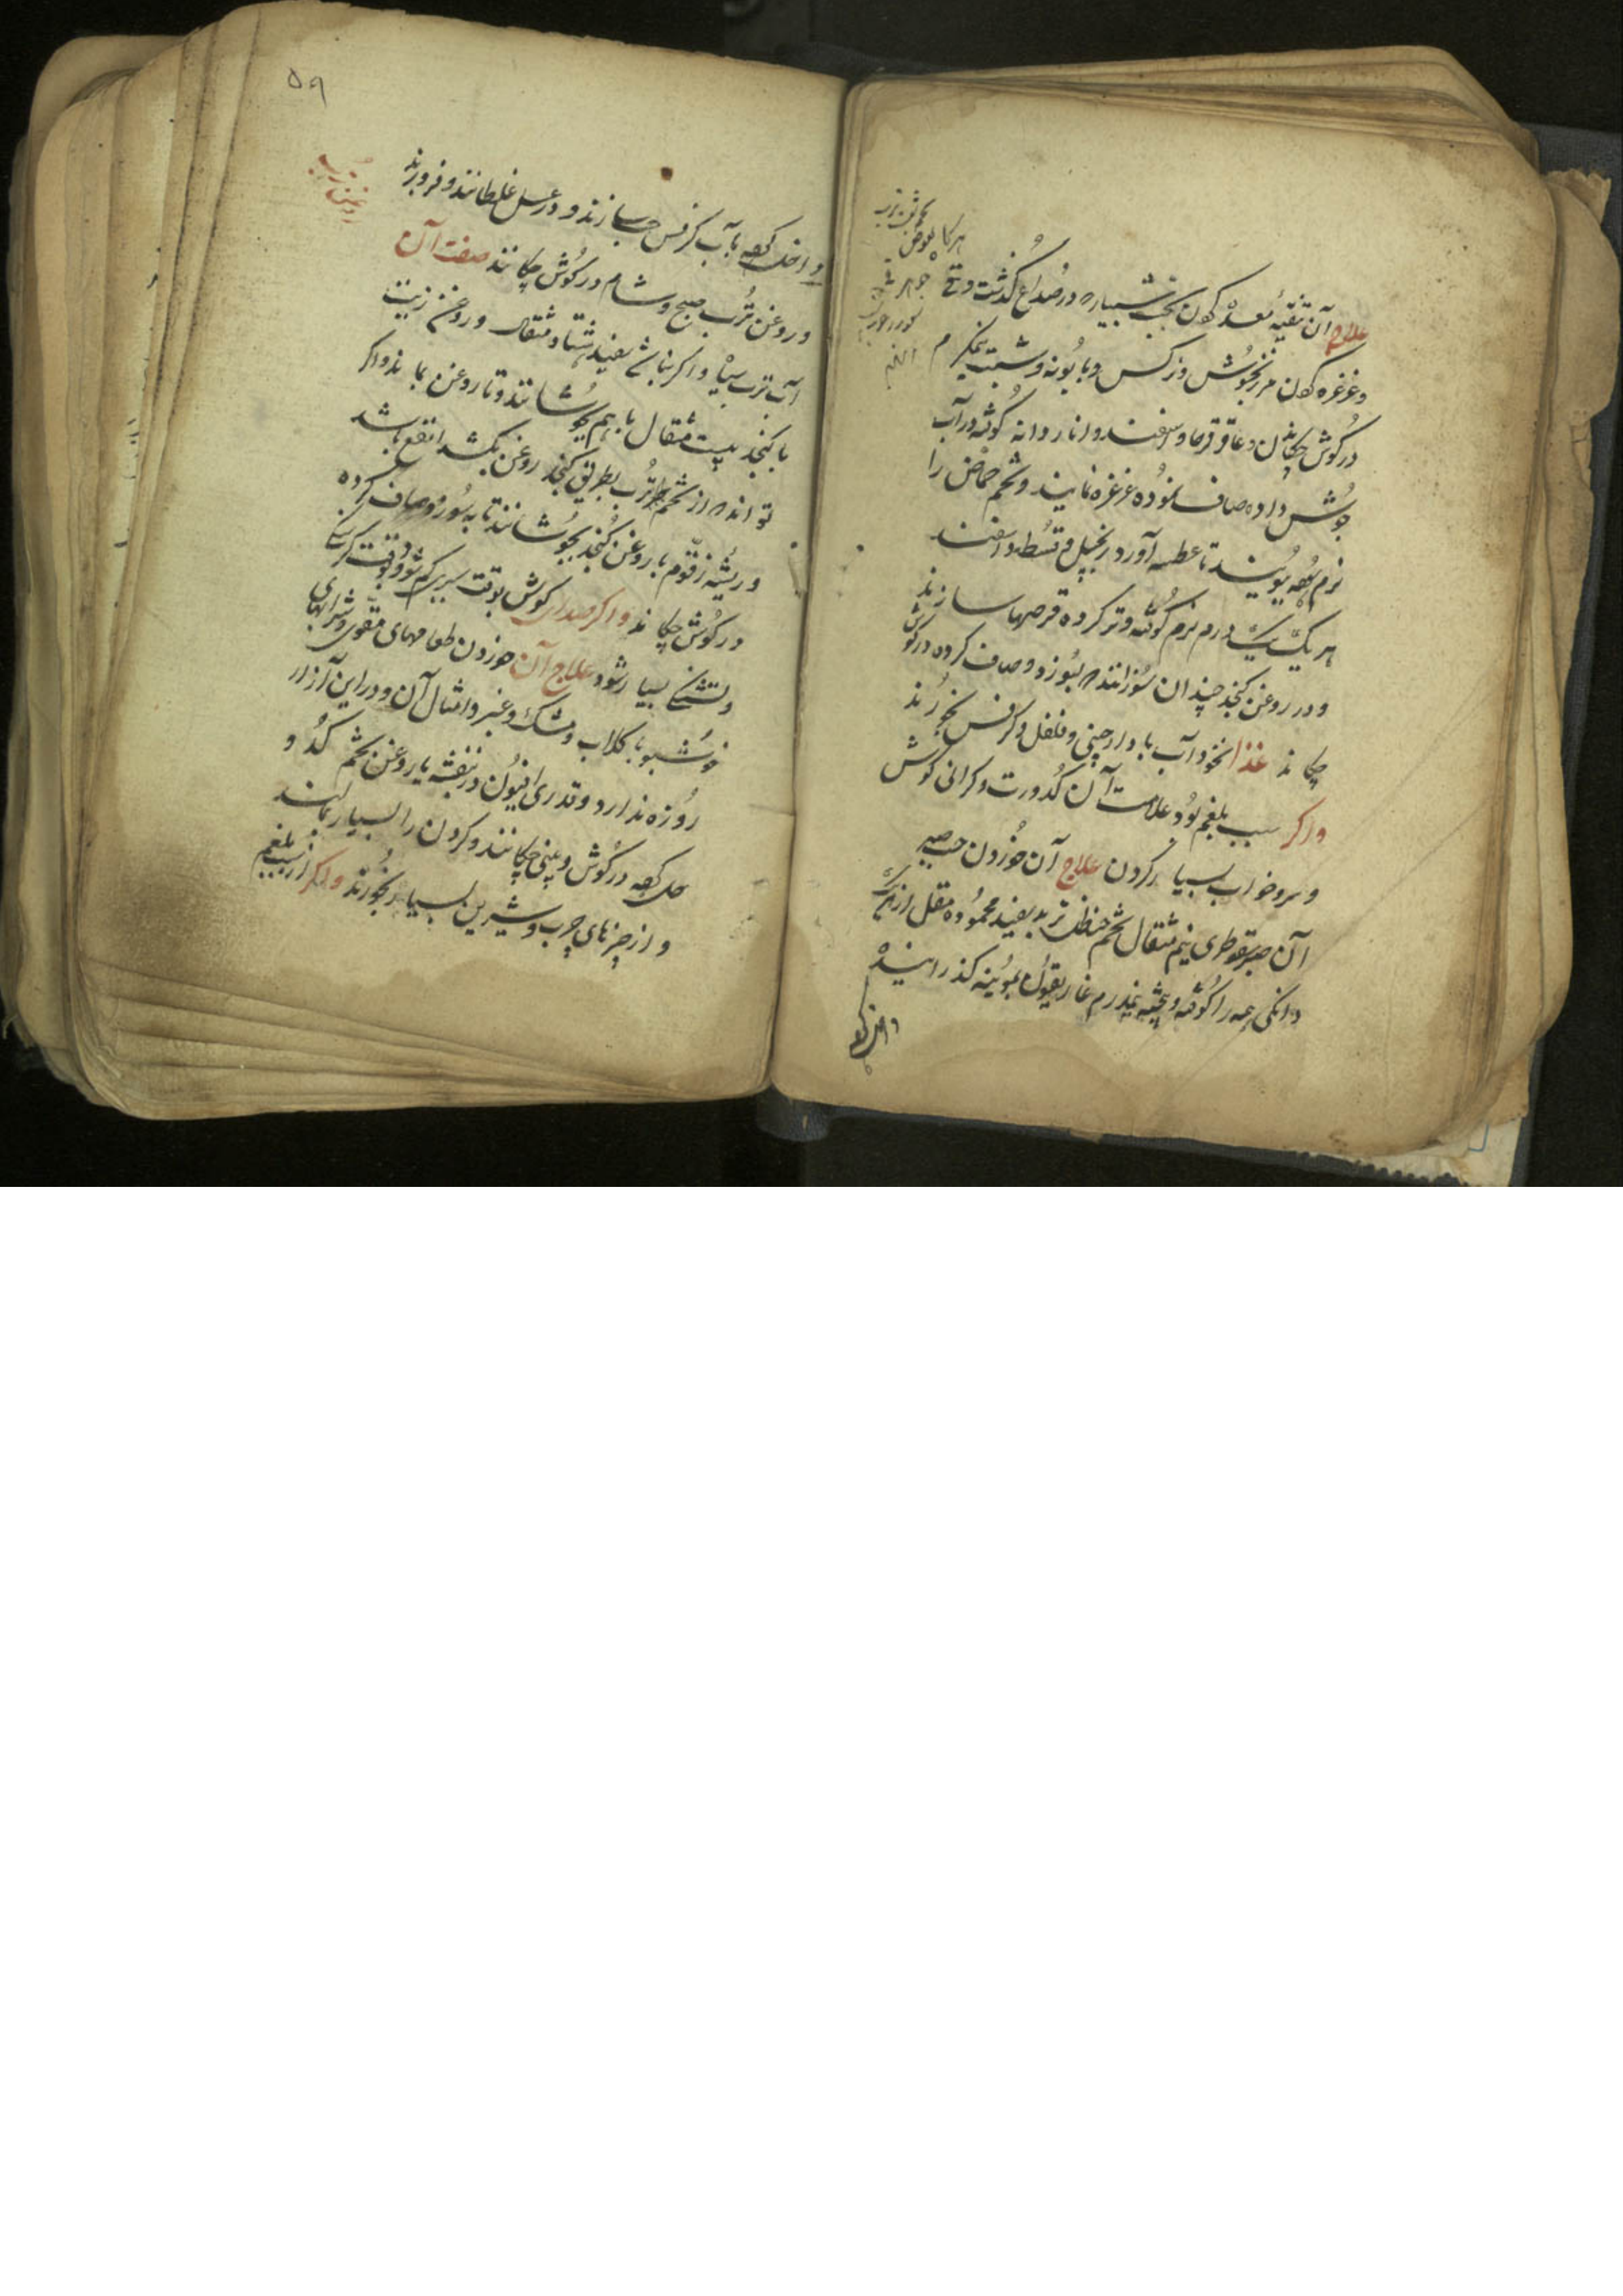 علاج آن تنقیه معده کردن بحب شبیار که در صداع گذشت وقی
وغرغره کردن مرزنجوش و نرگس و بابونه و شبت نیمگرم
در گوش چکانیدن و عاقرقرحا و اسفند و انار دانه کوفته در آب
جوش داده صاف نموده غرغره نمایند و تخم حماض را
نرم کرده ببویند تا عطسه آورد زنجبیل و قسط و اسفند
هر یک یک درم نرم کوفته و تر کرده قرصها سازند
و در روغن کنجد چندان سوزانند که بسوزد و صاف کرده در گوش
چکانند غذا نخود آب با دارچینی و فلفل و کرفس بخورند
و اگر سبب بلغم بود علامت آن کدورت و کرانی گوش
و سر و خواب بسیار کردن علاج آن خوردن حب صبر
آن صبر سقوطری نیم مثقال شحم حنظل تربد سفید محموده مقل از هر یک
دانگی همه را کوفته و بیخته نیمدرم غاریقون بموینه گذرانیده
داخل کرده
۵۹
داخل کرده بآب کرفس حب سازند و در عسل غلطانند و فرو برند
و روغن ترب صبح و شام در گوش چکانند صفت آن
آب ترب سیاه و اگر نباشد سفید هشتاد مثقال و روغن زیت
یا کنجد بیست مثقال با هم بجوشانند تا روغن بماند و اگر
توانند که از تخم ترب بطریق کنجد روغن بکشند انفع باشد
و ریشه زقوم با روغن کنجد بجوشانند تا بسوزد و صاف کرده
در گوش چکانند و اگر صدای گوش بوقت سیری کم شود و وقت گرسنگی
و تشنگی بسیار شود علاج آن خوردن طعامهای مقوی و شرابهای
خوشبو با گلاب و مشک و عنبر و امثال آن و در این آزار
روزه ندارد و قدری افیون در بنفشه یا روغن تخم کدو
حل کرده در گوش و بینی چکانند و گردن را بسیار بمالند
و از چیزهای چرب و شیرین بسیار بخورند و اگر از سبب بلغم